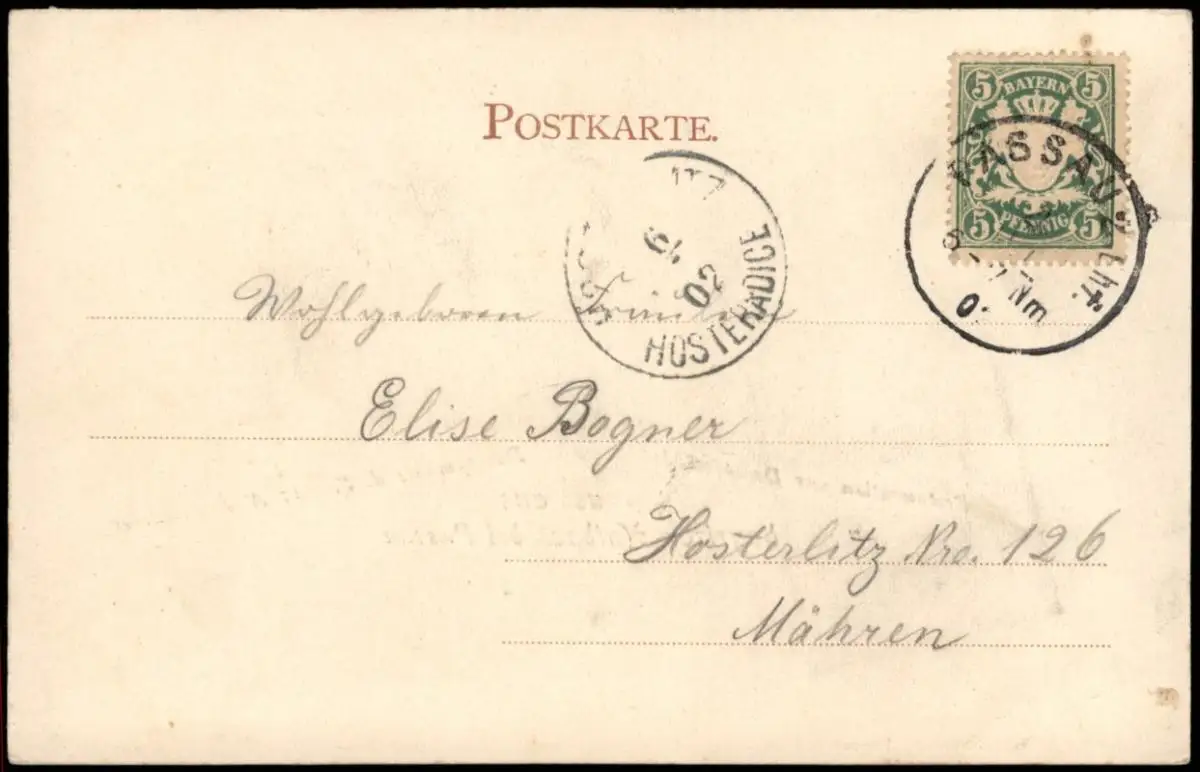 POSTKARTE.
5 BAYERN 5
5 PFENNIG 5
PASSAU
Nm
6/4
02
HOSTERADICE
Wohlgeboren Fräulein
Elise Bogner
Hosterlitz Nro. 126
Mähren